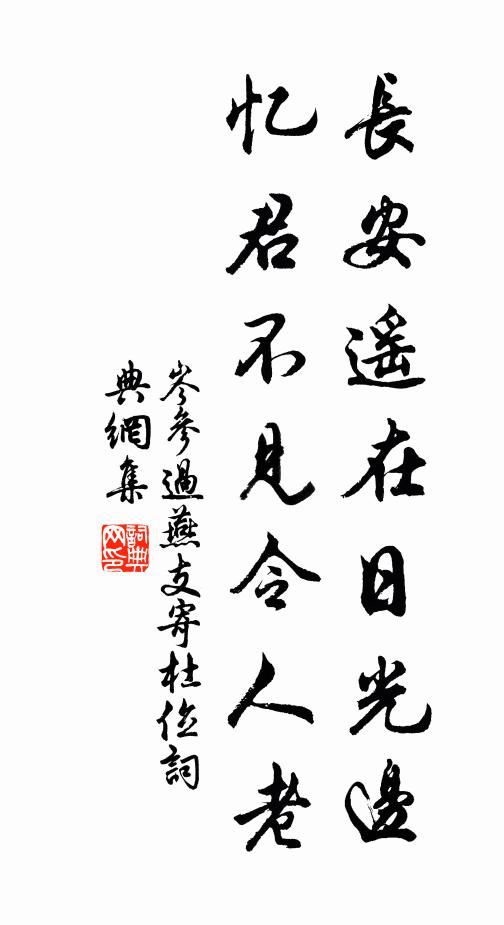 長安遥在日光邊
忆君不見令人老
岑參過燕支寄杜位詞
典網集
詞典
网印